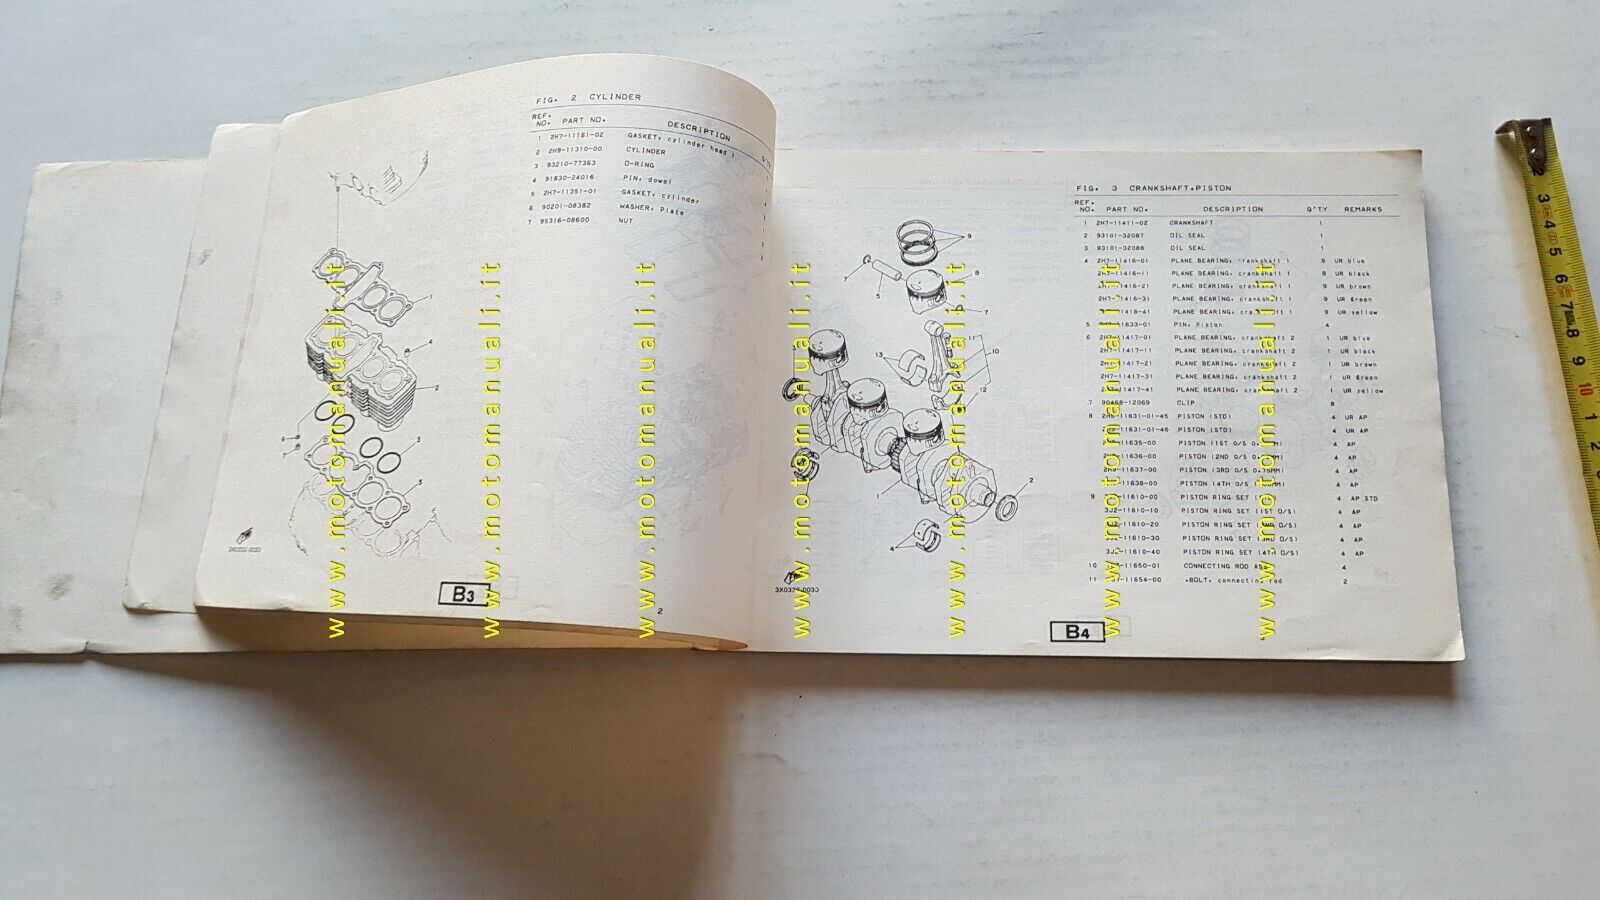 FIG. 2 CYLINDER
REF. NO. PART NO. DESCRIPTION Q'TY
1 2H7-11181-02 GASKET, cylinder head 1 1
2 2H9-11310-00 CYLINDER
3 93210-77363 O-RING
4 91830-24016 PIN, dowel
5 2H7-11351-01 GASKET, cylinder
6 90201-08382 WASHER, Plate
7 95316-08600 NUT
1
4
2
3
6
7
5
B3
2
FIG. 3 CRANKSHAFT.PISTON
REF. NO. PART NO. DESCRIPTION Q'TY REMARKS
1 2H7-11411-02 CRANKSHAFT 1
2 93101-32087 OIL SEAL 1
3 93101-32088 OIL SEAL 1
4 2H7-11416-01 PLANE BEARING, crankshaft 1 9 UR blue
2H7-11416-11 PLANE BEARING, crankshaft 1 9 UR black
2H7-11416-21 PLANE BEARING, crankshaft 1 9 UR brown
2H7-11416-31 PLANE BEARING, crankshaft 1 9 UR green
PLANE BEARING, crankshaft 1 9 UR yellow
5 PIN, Piston 4
6 2H7-11417-01 PLANE BEARING, crankshaft 2 1 UR blue
2H7-11417-11 PLANE BEARING, crankshaft 2 1 UR black
PLANE BEARING, crankshaft 2 1 UR brown
PLANE BEARING, crankshaft 2 1 UR green
PLANE BEARING, crankshaft 2 1 UR yellow
7 90468-12069 CLIP 8
8 PISTON (STD) 4 UR AP
PISTON (STD) 4 UR AP
PISTON (1ST O/S 4 AP
PISTON (2ND O/S 4 AP
PISTON (3RD O/S 4 AP
PISTON (4TH O/S 4 AP
9 PISTON RING SET 4 AP STD
3J2-11610-10 PISTON RING SET (1ST O/S) 4 AP
PISTON RING SET O/S) 4 AP
PISTON RING SET O/S) 4 AP
PISTON RING SET (4TH O/S) 4 AP
10 CONNECTING ROD 4
11 .BOLT, connecting rod 2
9
7
8
5
7
3
13
11
10
12
1
2
4
B4
www.motomanuali.it
www.motomanuali.it
www.motomanuali.it
www.motomanuali.it
www.motomanuali.it
www.motomanuali.it
www.motomanuali.it
2
3
4
5
6
7
8
9
10
1
2